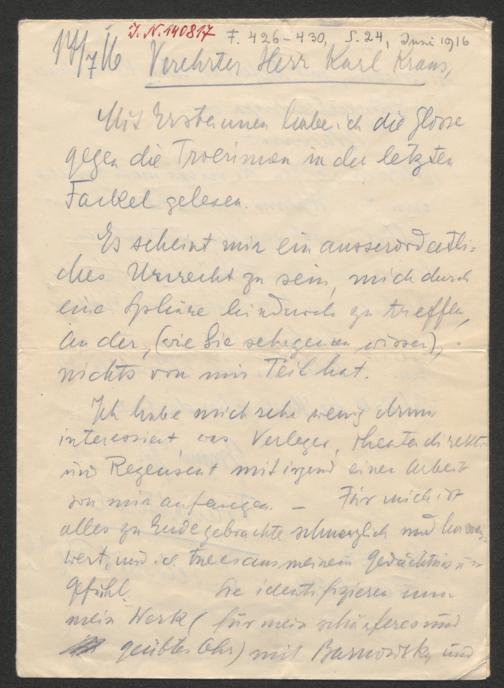 J.N. 140817
F. 426-430, S. 24, Juni 1916
14/7 16 Verehrter Herr Karl Kraus,
Mit Erstaunen habe ich die Glosse
gegen die Troerinnen in der letzten
Fackel gelesen.
Es scheint mir ein ausserordentli-
ches Unrecht zu sein, mich durch
eine Sphäre hindurch zu treffen,
an der, (wie Sie sehr genau wissen),
nichts von mir Teil hat.
Ich habe mich sehr wenig darum
interessiert was Verleger, Theaterdirektor
und Rezensent mit irgend einer Arbeit
von mir anfangen. — Für mich ist
alles zu Ende gebrachte schmerzlich und
wert, und ich tue es aus meinem Gedächtnis und
Gefühl. Sie identifizieren nun
mein Werk (für mein schärferes und
geübtes Ohr) mit Barnowsky und